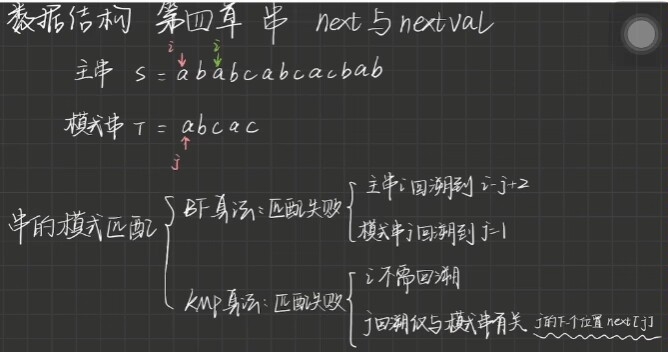 数据结构 第四章 串 next与nextval
i i
主串 S = a b a b c a b c a c b a b
模式串 T = a b c a c
j
串的模式匹配
BF算法：匹配失败
主串i回溯到 i-j+2
模式串j回溯到j=1
KMP算法：匹配失败
i不需回溯
j回溯仅与模式串有关 j的下个位置next[j]